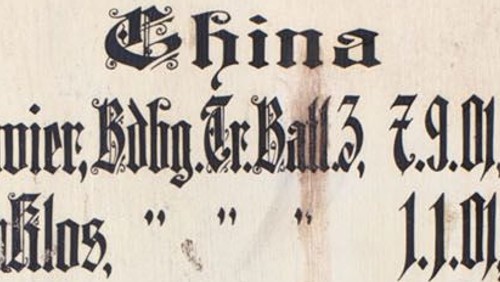 China
vier, Bdbg. Tr. Batl. 3, 7.9.01,
klos, " " " 1.1.01,